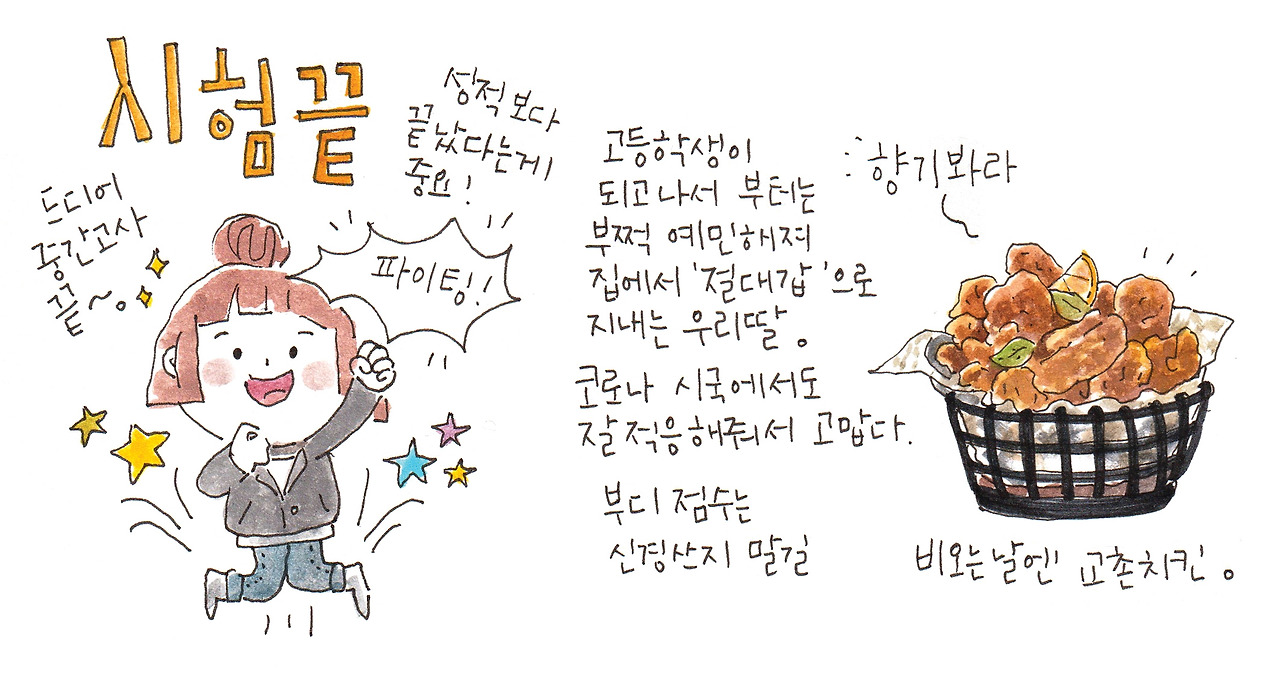 시험끝
성적보다
끝났다는게
중요!
드디어
중간고사
끝~。
파이팅!!
고등학생이
되고나서 부터는
부쩍 예민해져
집에서 '절대갑'으로
지내는 우리딸。
코로나 시국에서도
잘 적응해줘서 고맙다.
부디 점수는
신경쓰지 말길
향기봐라
비오는날엔 교촌치킨。